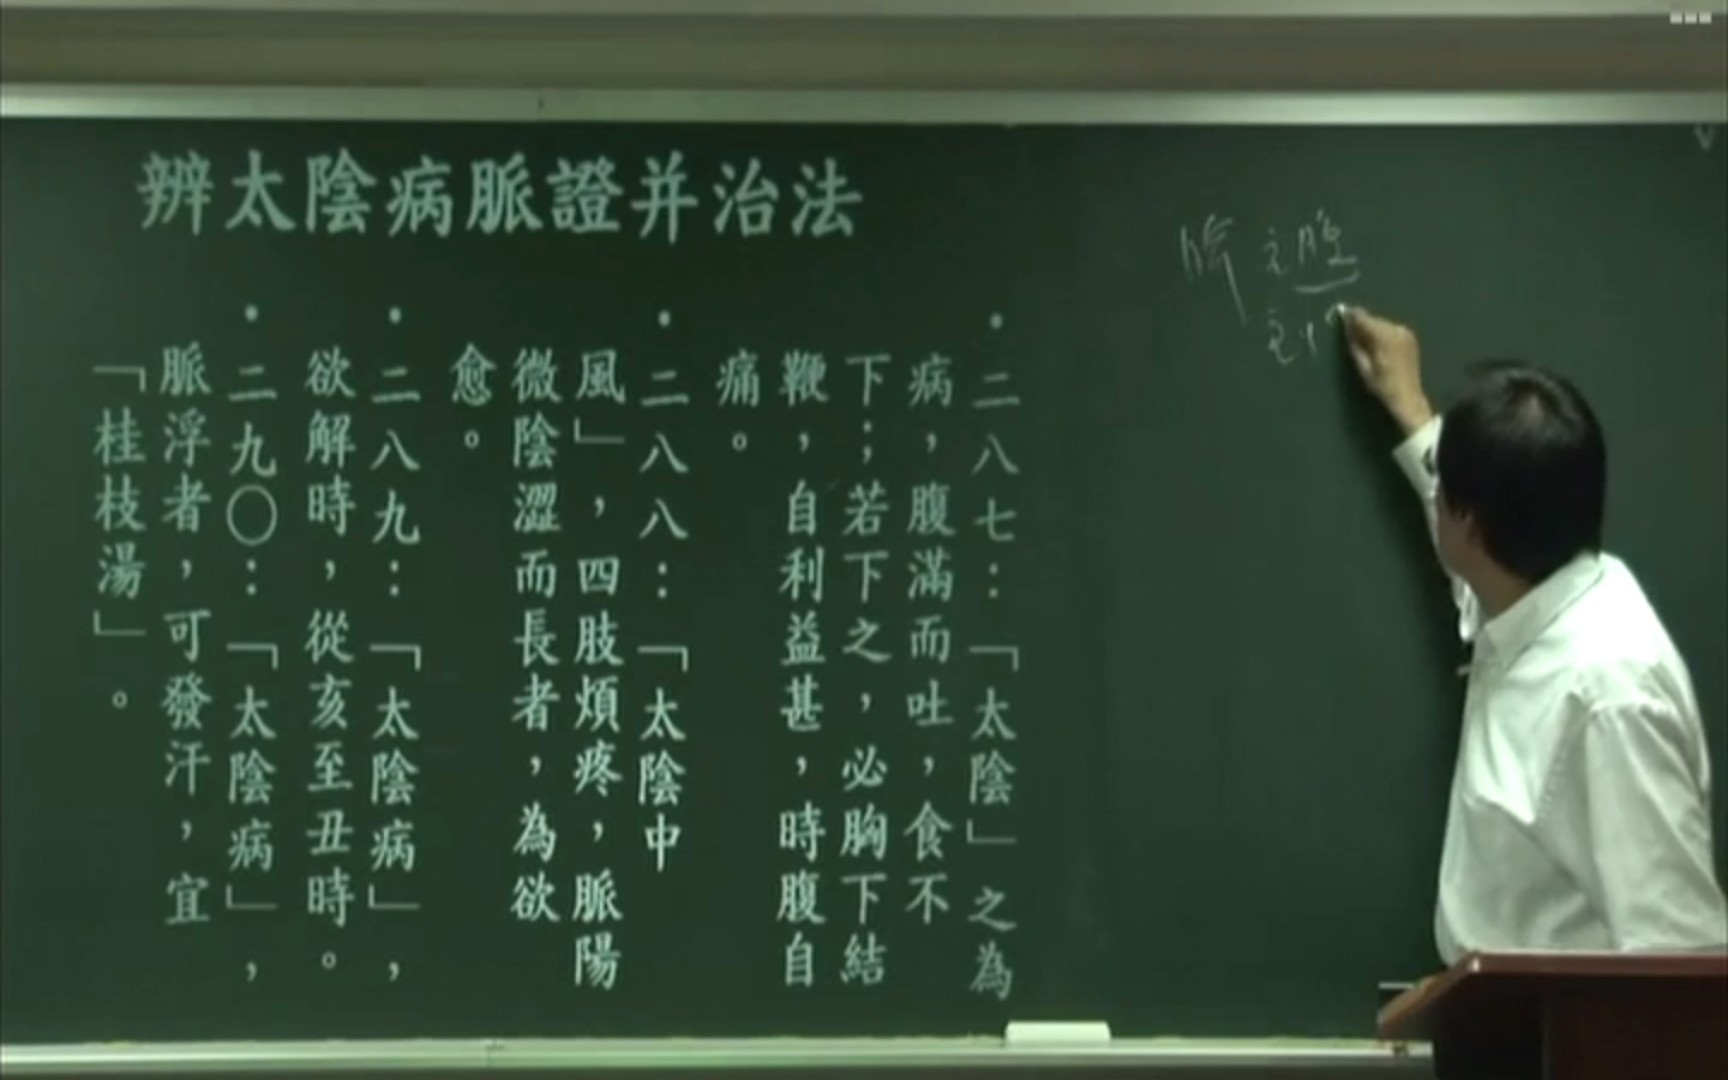 辨太陰病脈證并治法
•二八七：「太陰」之為
病，腹滿而吐，食不
下；若下之，必胸下結
鞕，自利益甚，時腹自
痛。
•二八八：「太陰中
風」，四肢煩疼，脈陽
微陰澀而長者，為欲
愈。
•二八九：「太陰病」，
欲解時，從亥至丑時。
•二九〇：「太陰病」，
脈浮者，可發汗，宜
「桂枝湯」。